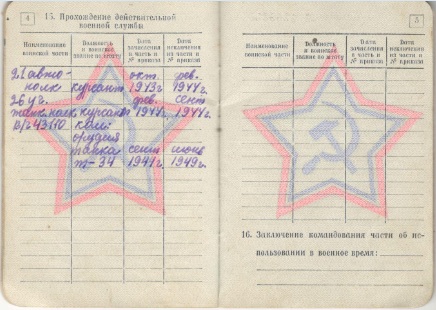 4
15. Прохождение действительной
военной службы
Наименование воинской части
Должность и воинское звание по штату
Дата зачисления в часть и № приказа
Дата исключения из части и № приказа
21 авто- окт. фев.
полк курсант 1943г 1944г.
26 уч. фев. сент
танк. полк курсант 1944г. 1944г.
в/ч 43110 ком.
орудия
танка сент июнь
т-34 1949г.
5
Наименование воинской части
Должность и воинское звание по штату
Дата зачисления в часть и № приказа
Дата исключения из части и № приказа
16. Заключение командования части об ис-
пользовании в военное время: